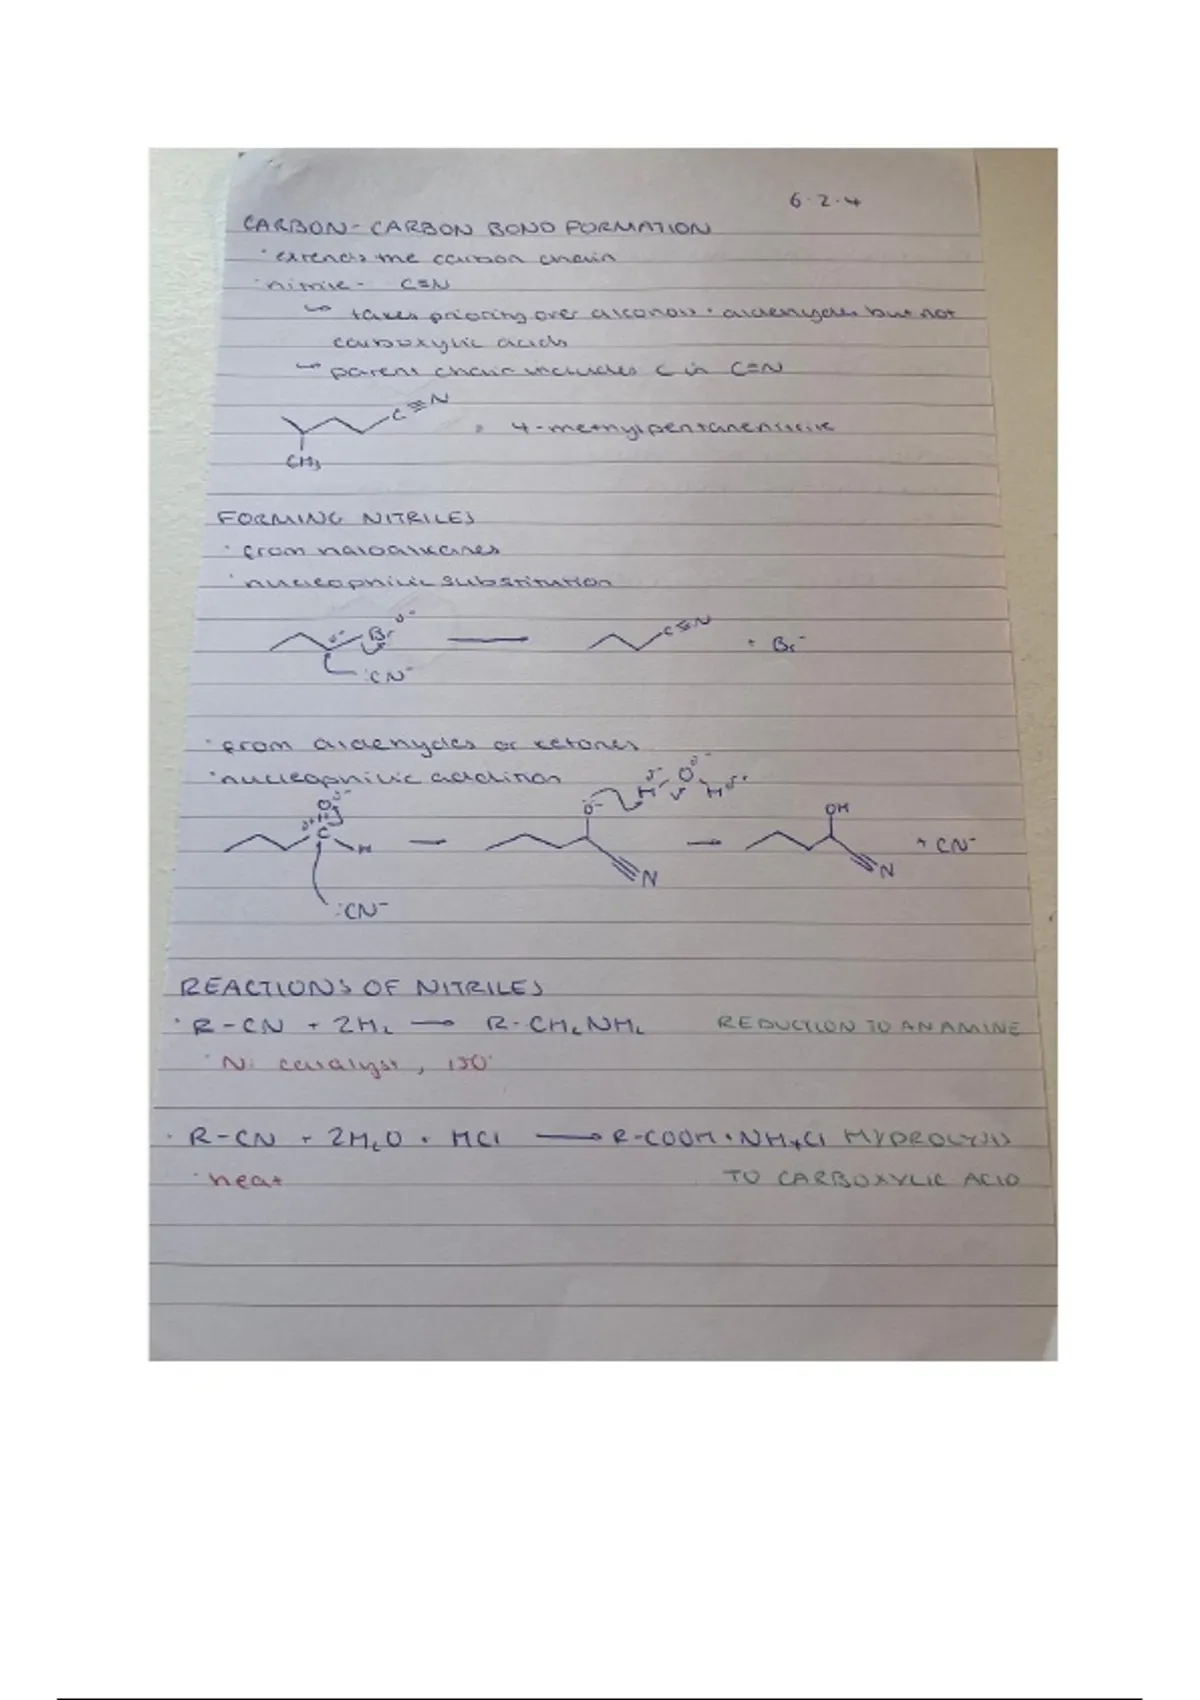 6.2.4
CARBON-CARBON BOND FORMATION
· extends the carbon chain
· nitrile - C≡N
↳ takes priority over alcohols + aldehydes but not
carboxylic acids
↳ parent chain includes C in C≡N
C≡N
= 4-methylpentanenitrile
CH3
FORMING NITRILES
· from haloalkanes
· nucleophilic substitution
δ- Br δ- → C≡N + Br-
:CN-
· from aldehydes or ketones
· nucleophilic addition
δ- H O δ- H δ+
O δ- O- OH
δ+ C H → N → N + CN-
:CN-
REACTIONS OF NITRILES
· R-CN + 2H2 → R-CH2NH2 REDUCTION TO AN AMINE
· Ni catalyst, 150°
· R-CN + 2H2O + HCl → R-COOH + NH4Cl HYDROLYSIS
· heat TO CARBOXYLIC ACID